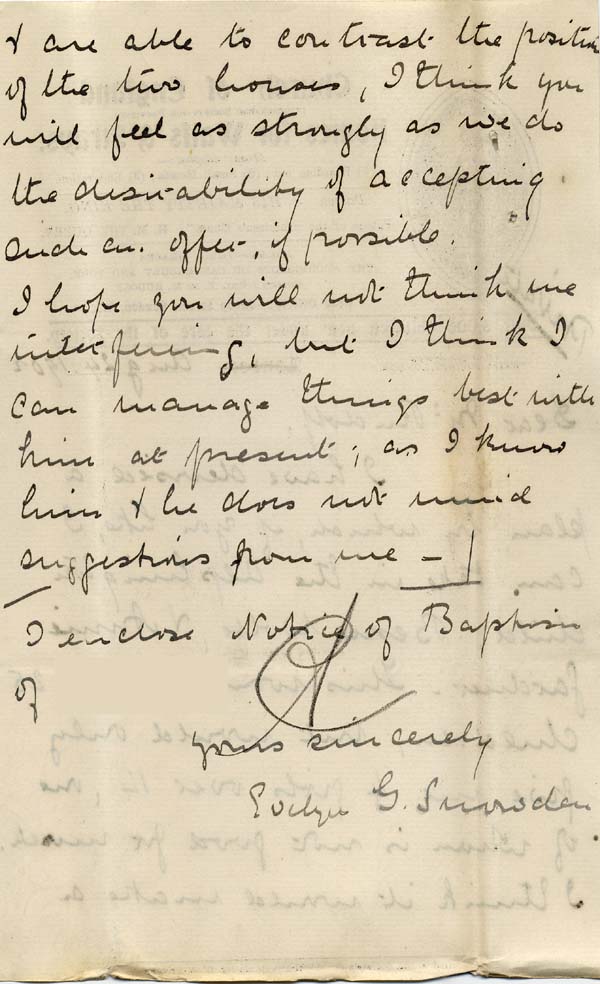 & are able to contrast the position
of the two houses, I think you
will feel as strongly as we do
the desirability of accepting
such an offer, if possible.
I hope you will not think me
interfering, but I think I
can manage things best with
him at present; as I know
him & he does not mind
suggestions from me –
I enclose Notice of Baptism
of
yours sincerely
Evelyn G. Snowden